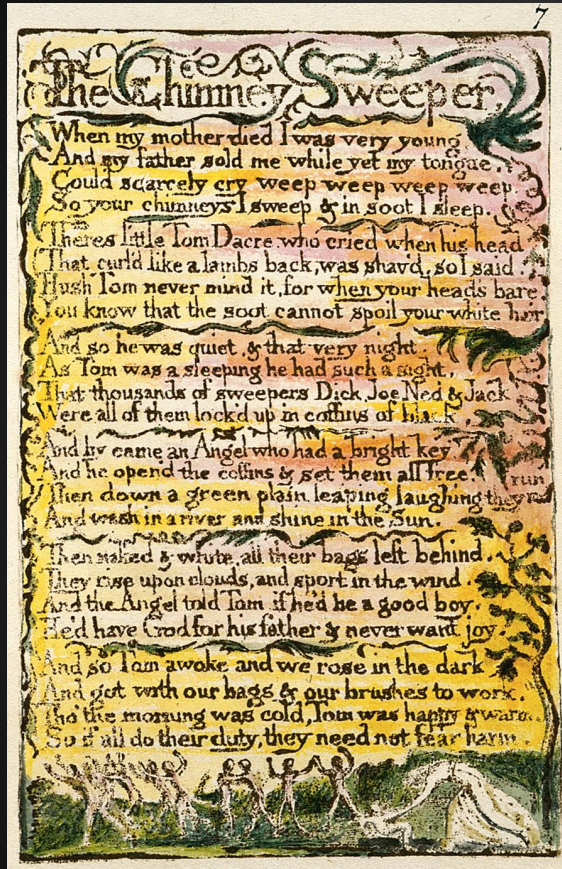 7
The Chimney Sweeper
When my mother died I was very young
And my father sold me while yet my tongue.
Could scarcely cry weep weep weep weep.
So your chimneys I sweep & in soot I sleep.
Theres little Tom Dacre, who cried when his head
That curl'd like a lambs back, was shav'd, so I said.
Hush Tom never mind it, for when your head's bare.
You know that the soot cannot spoil your white hair
And so he was quiet, & that very night.
As Tom was a sleeping he had such a sight.
That thousands of sweepers Dick, Joe, Ned & Jack
Were all of them lock'd up in coffins of black.
And by came an Angel who had a bright key
And he open'd the coffins & set them all free.
Then down a green plain leaping laughing they run
And wash in a river and shine in the Sun.
Then naked & white, all their bags left behind.
They rise upon clouds, and sport in the wind.
And the Angel told Tom if he'd be a good boy,
He'd have God for his father & never want joy.
And so Tom awoke and we rose in the dark
And got with our bags & our brushes to work.
Tho' the morning was cold, Tom was happy & warm.
So if all do their duty, they need not fear harm.